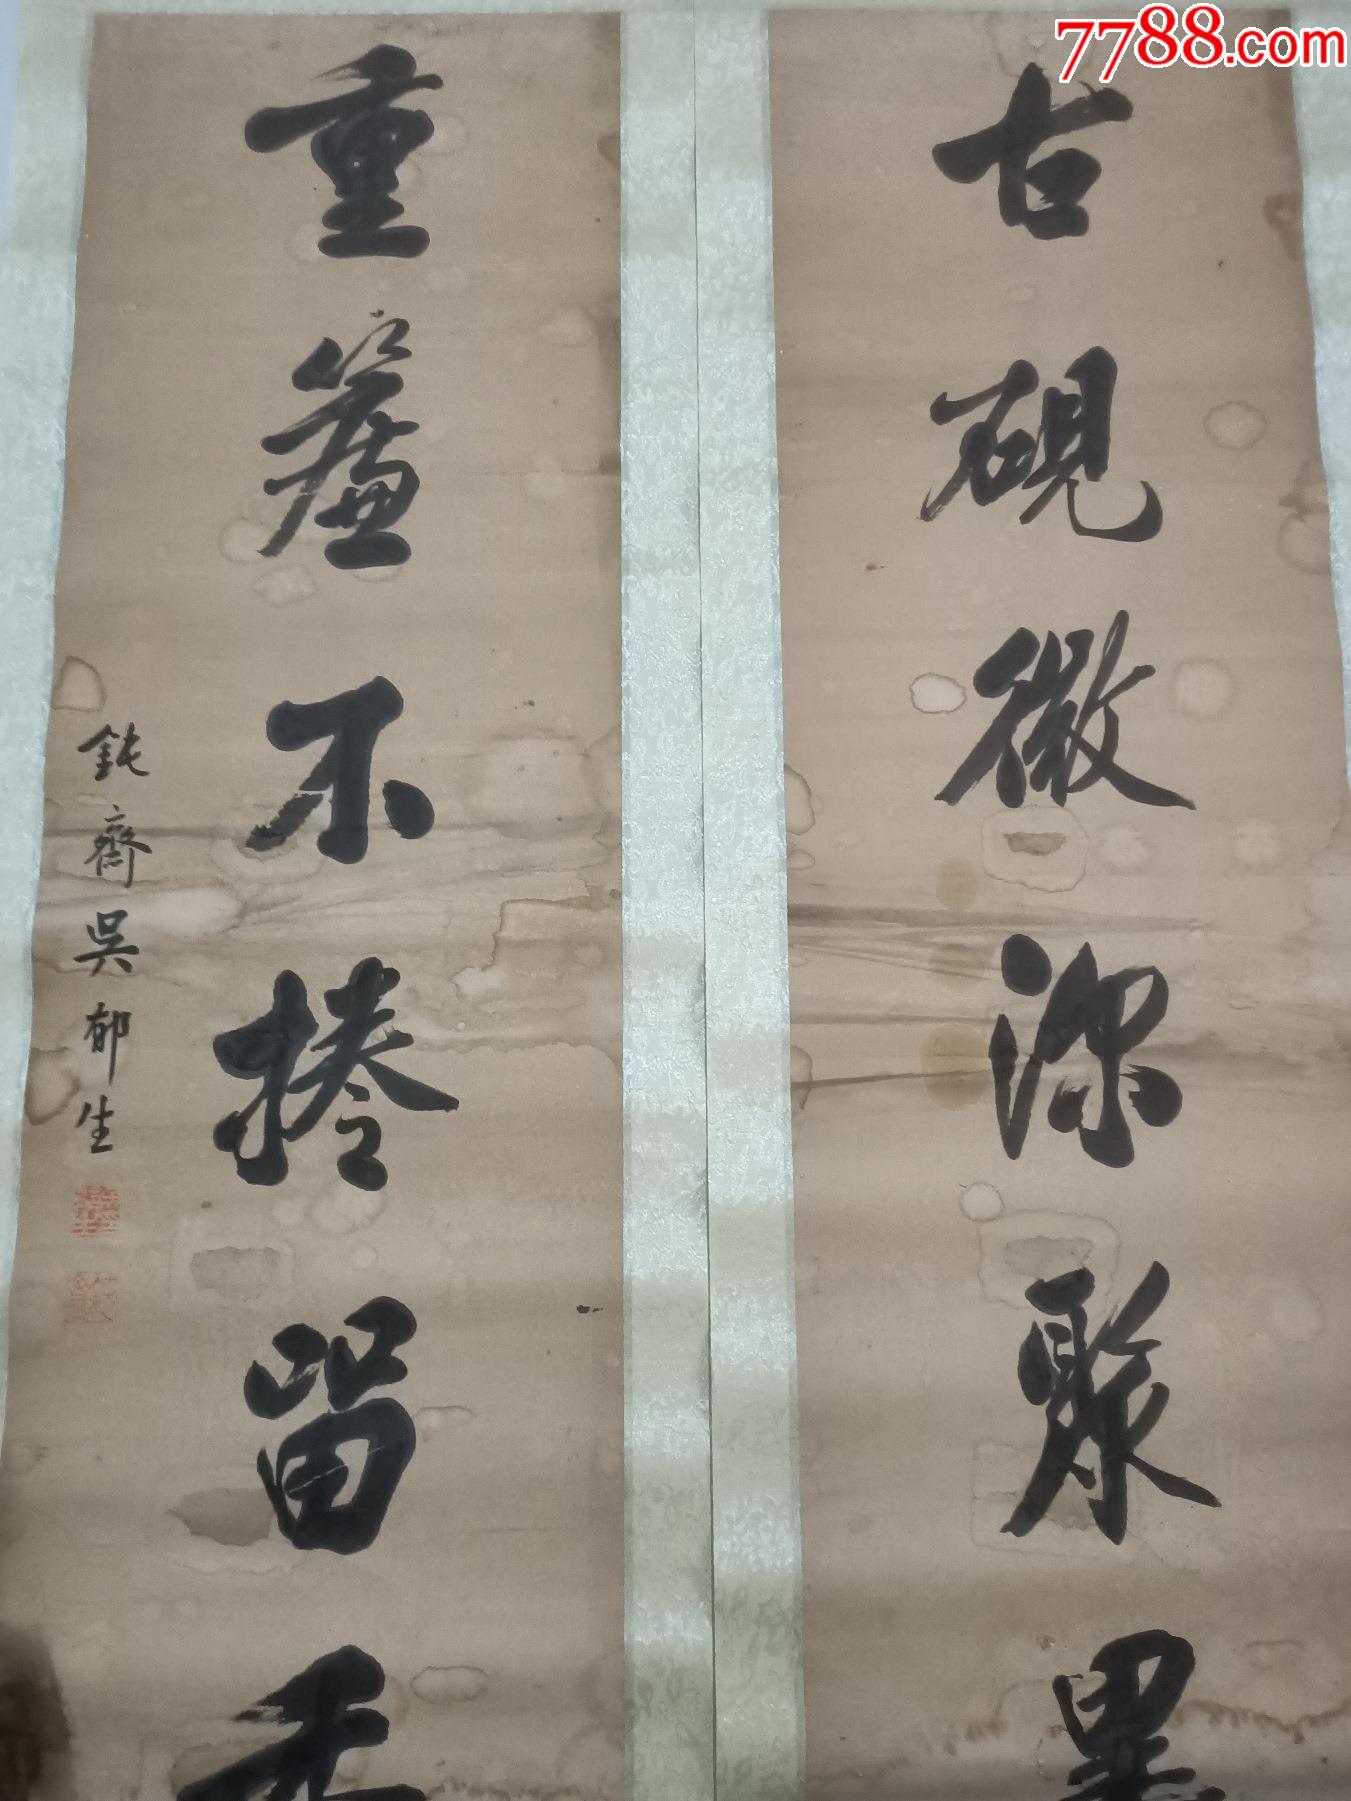 7788.com
古硯微深聚墨
重簾不捲留香
鈍齋吳郁生